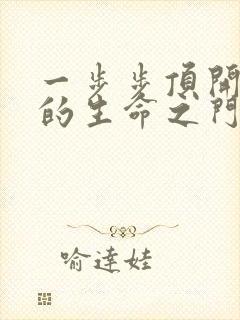 一步步頂開
的生命之門
喻達娃